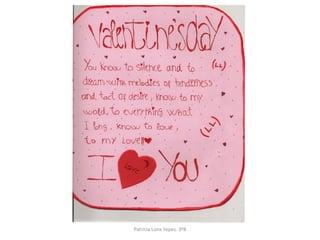 Valentine's day
You know to silence and to (LL)
dream with melodies of tenderness
and tact of desire, know to my
world to everything what
I long, know to love, (LL)
to my love
I Love You
Patricia Luna Yepes. 3ºB